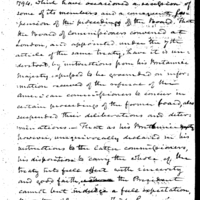 1794. which have occasioned a suspension of
some of its members and a consequent sus-
pension of the proceedings of the Board, that
the Board of Commissioners convened in
London, also appointed under the 7th
article of the same treaty, have it is un-
derstood, by instructions from his Britannic
Majesty refused to be governed on infor-
mation received of the refusal of the
American commissioners to concur in
certain proceedings of the former board, also
suspended their deliberations and deter-
minations:— That as his Britannic
however, unequivocally declared in his
instructions to the latter commissioners,
his disposition to carry the whole of the
treaty into full effect with sincerity
and good faith, the President
cannot but indulge a full expectation,